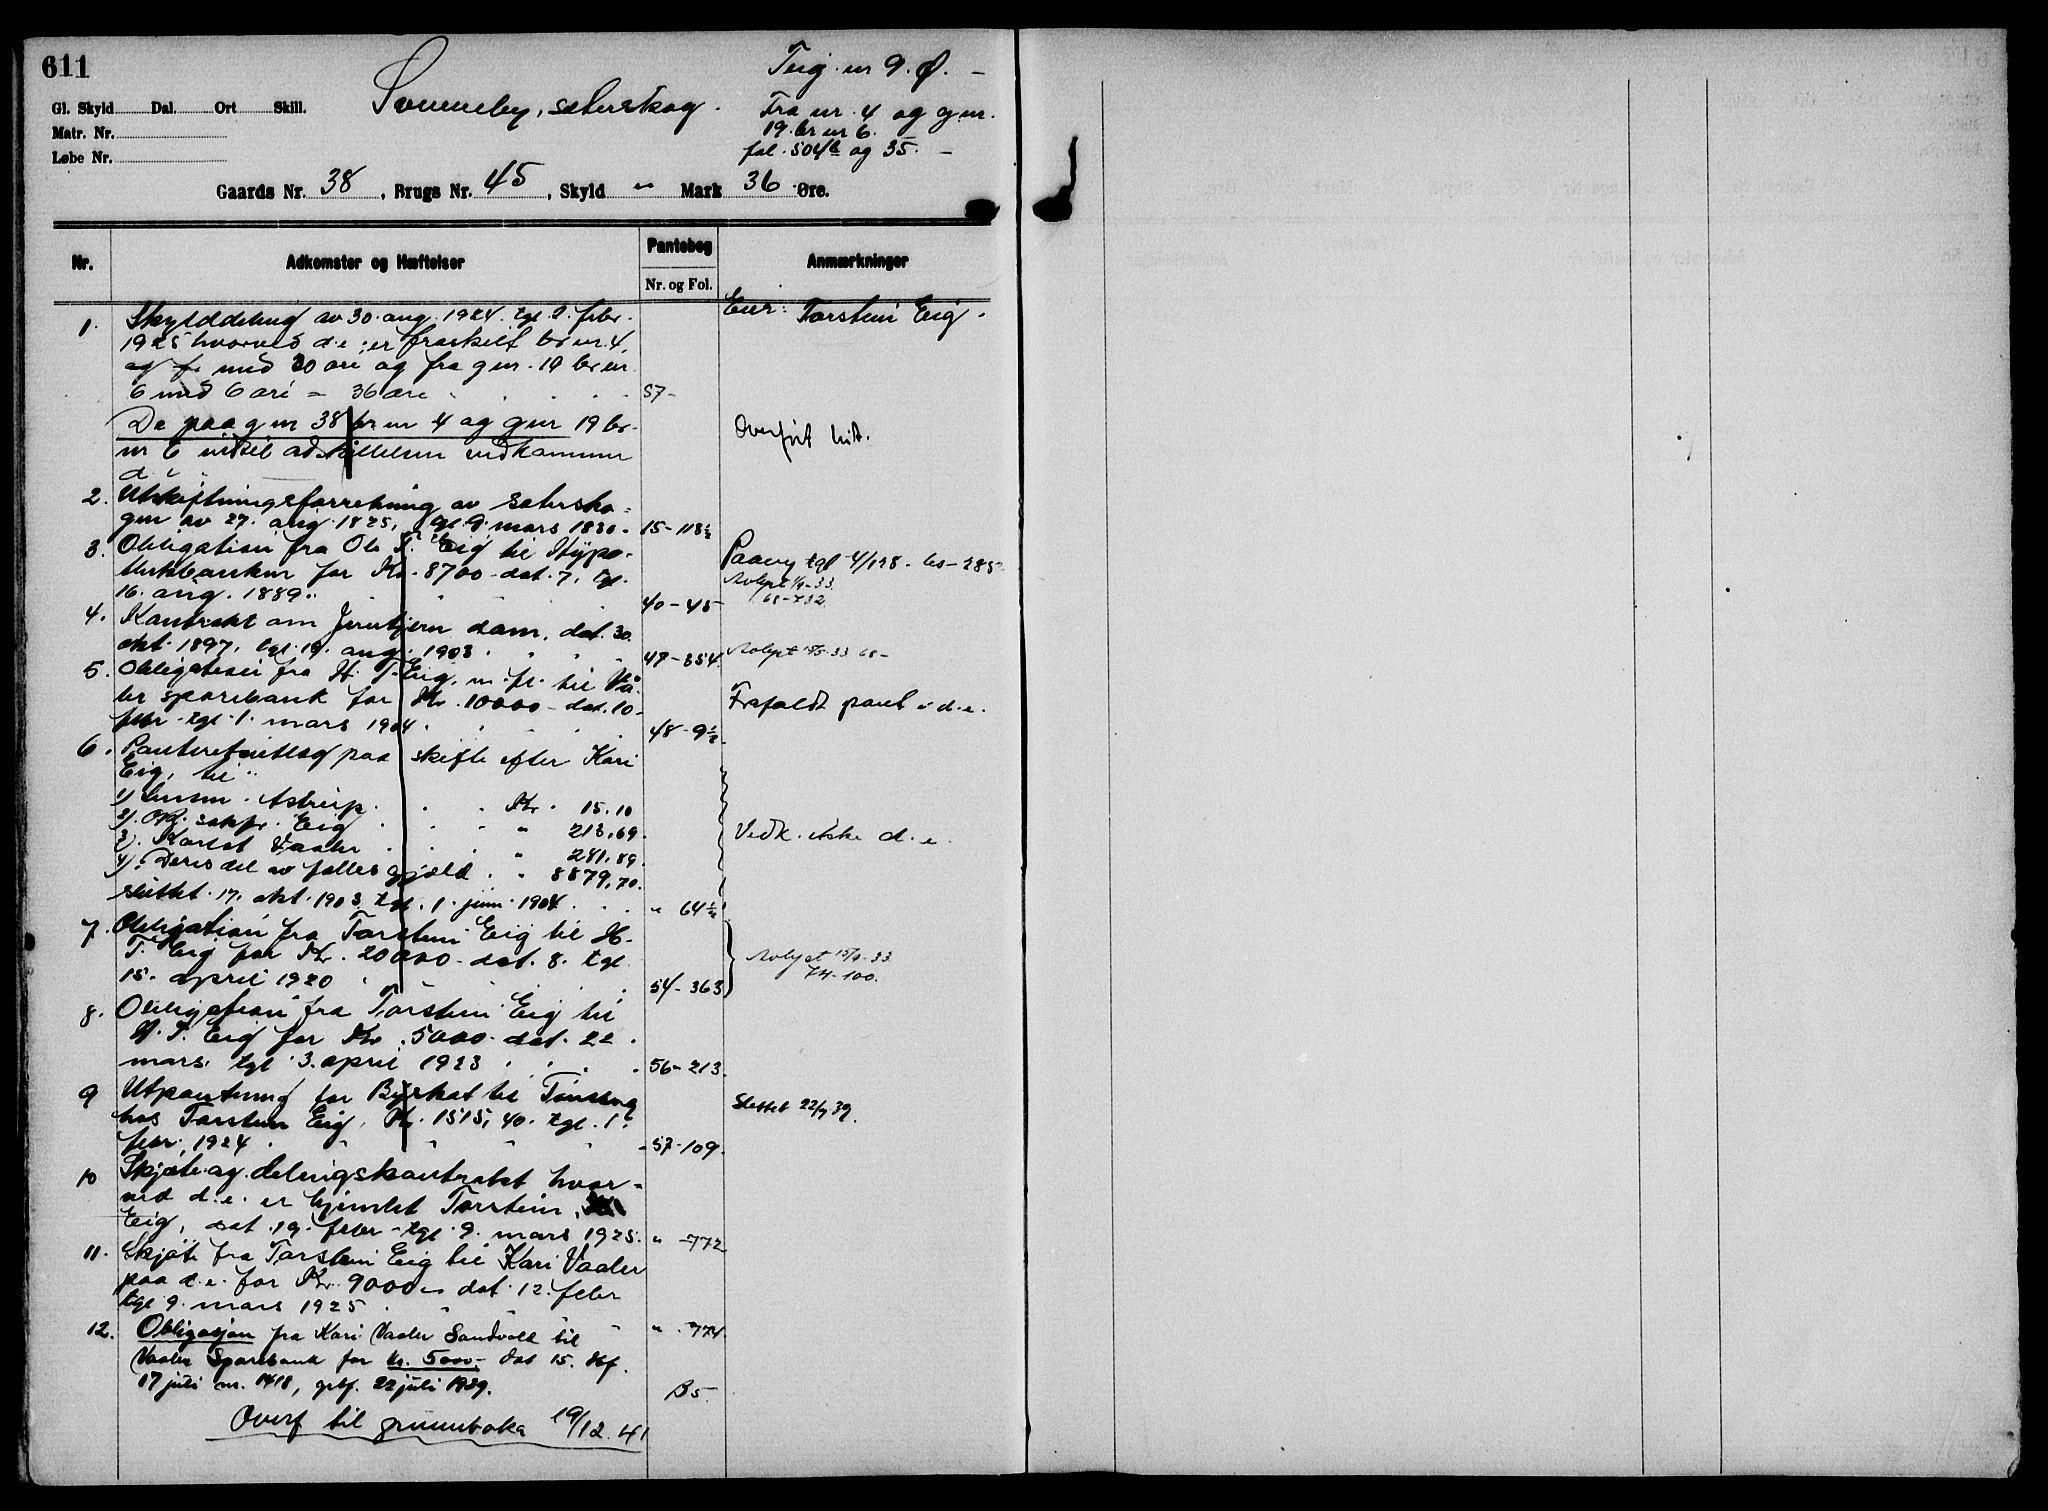 611
Teig nr 9. Ø. –
Sømneby, sæterskog.
Gl. Skyld Dal. Ort Skill.
Fra nr. 4 og gnr.
19. br nr 6.
Matr. Nr.
fol. 504b og 35. –
Løbe Nr.
Gaards Nr. 38, Brugs Nr. 45, Skyld " Mark 36 Øre.
Nr. Adkomster og Hæftelser Pantebog Anmærkninger
Nr. og Fol.
1. Skylddeling av 30. aug. 1924. tgl. 2. febr. Eier: Torstein Eig.
1925 hvorved d.e. er fraskilt br nr. 4
med 30 øre og fra gnr. 19 br nr
6 med 6 øre = 36 øre 57–
De paa gnr 38 br nr 4 og gnr 19 br. Overført hit.
nr 6 indtil adskillelsen vedkommer
d
2. Utskiftningsforretning av sætersko-
gen av 27. aug. 1825, tgl. 9. mars 1830. 15–118½
3. Obligation fra Ole T. Eig til Hypo- Paany tgl 4/1
thekbanken for Kr. 8700– dat. 7. tgl. Avlyst 33
16. aug. 1889. 40–45 68–732
4. Kontrakt om dam. dat. 30.
okt. 1897, tgl. 19. aug. 1903. 47–354 Avlyst 33 68–
5. Obligation fra H. T. Eig m. fl. til Vå-
ler sparebank for Kr. 10000– dat. 10– Frafaldt pant i d.e.
febr. tgl. 1. mars 1904. 48–9½
6. Panteretsutlæg paa skifte efter Kari
Eig, til
1) Lensm. Astrup. Kr. 15.10
2). O.r. sakfr. Eig " 213,69.
3). Karlot Vaaler " 241,89. Vedk. ikke d.e.
4). Deres del av fælles gjæld " 8879,70.
sluttet 17. okt. 1903. tgl. 1. juni 1904 " 64½
7. Obligation fra Torstein Eig til H.
T. Eig for Kr. 20000– dat. 8. tgl. Avlyst 33.
15. april 1920 54–363 74–100.
8. Obligation fra Torstein Eig til
H. T. Eig for Kr. 5000– dat. 22.
mars. tgl. 3. april 1923 56–213.
9 Utpantning for Byskat til Tønsberg Slettet 22/7 39.
hos Torstein Eig, Kr. 1515,40. tgl. 1.
febr. 1924. 57–109.
10 Skjøte og delingskontrakt hvor-
ved d.e. er hjemlet Torstein
Eig, dat. 19. febr. tgl. 9. mars 1925. " –772
11. Skjøte fra Torstein Eig til Kari Vaaler
paa d.e. for Kr. 9000– dat. 12. febr
tgl 9. mars 1925 " –774.
12. Obligasjon fra Kari Vaaler Sandvold til
Vaaler Sparebank for kr. 5000,– dat 15. dbf.
17 juli nr. 1418, grbf. 22 juli 1939. B5
Overf til grunnboka 19/12 41